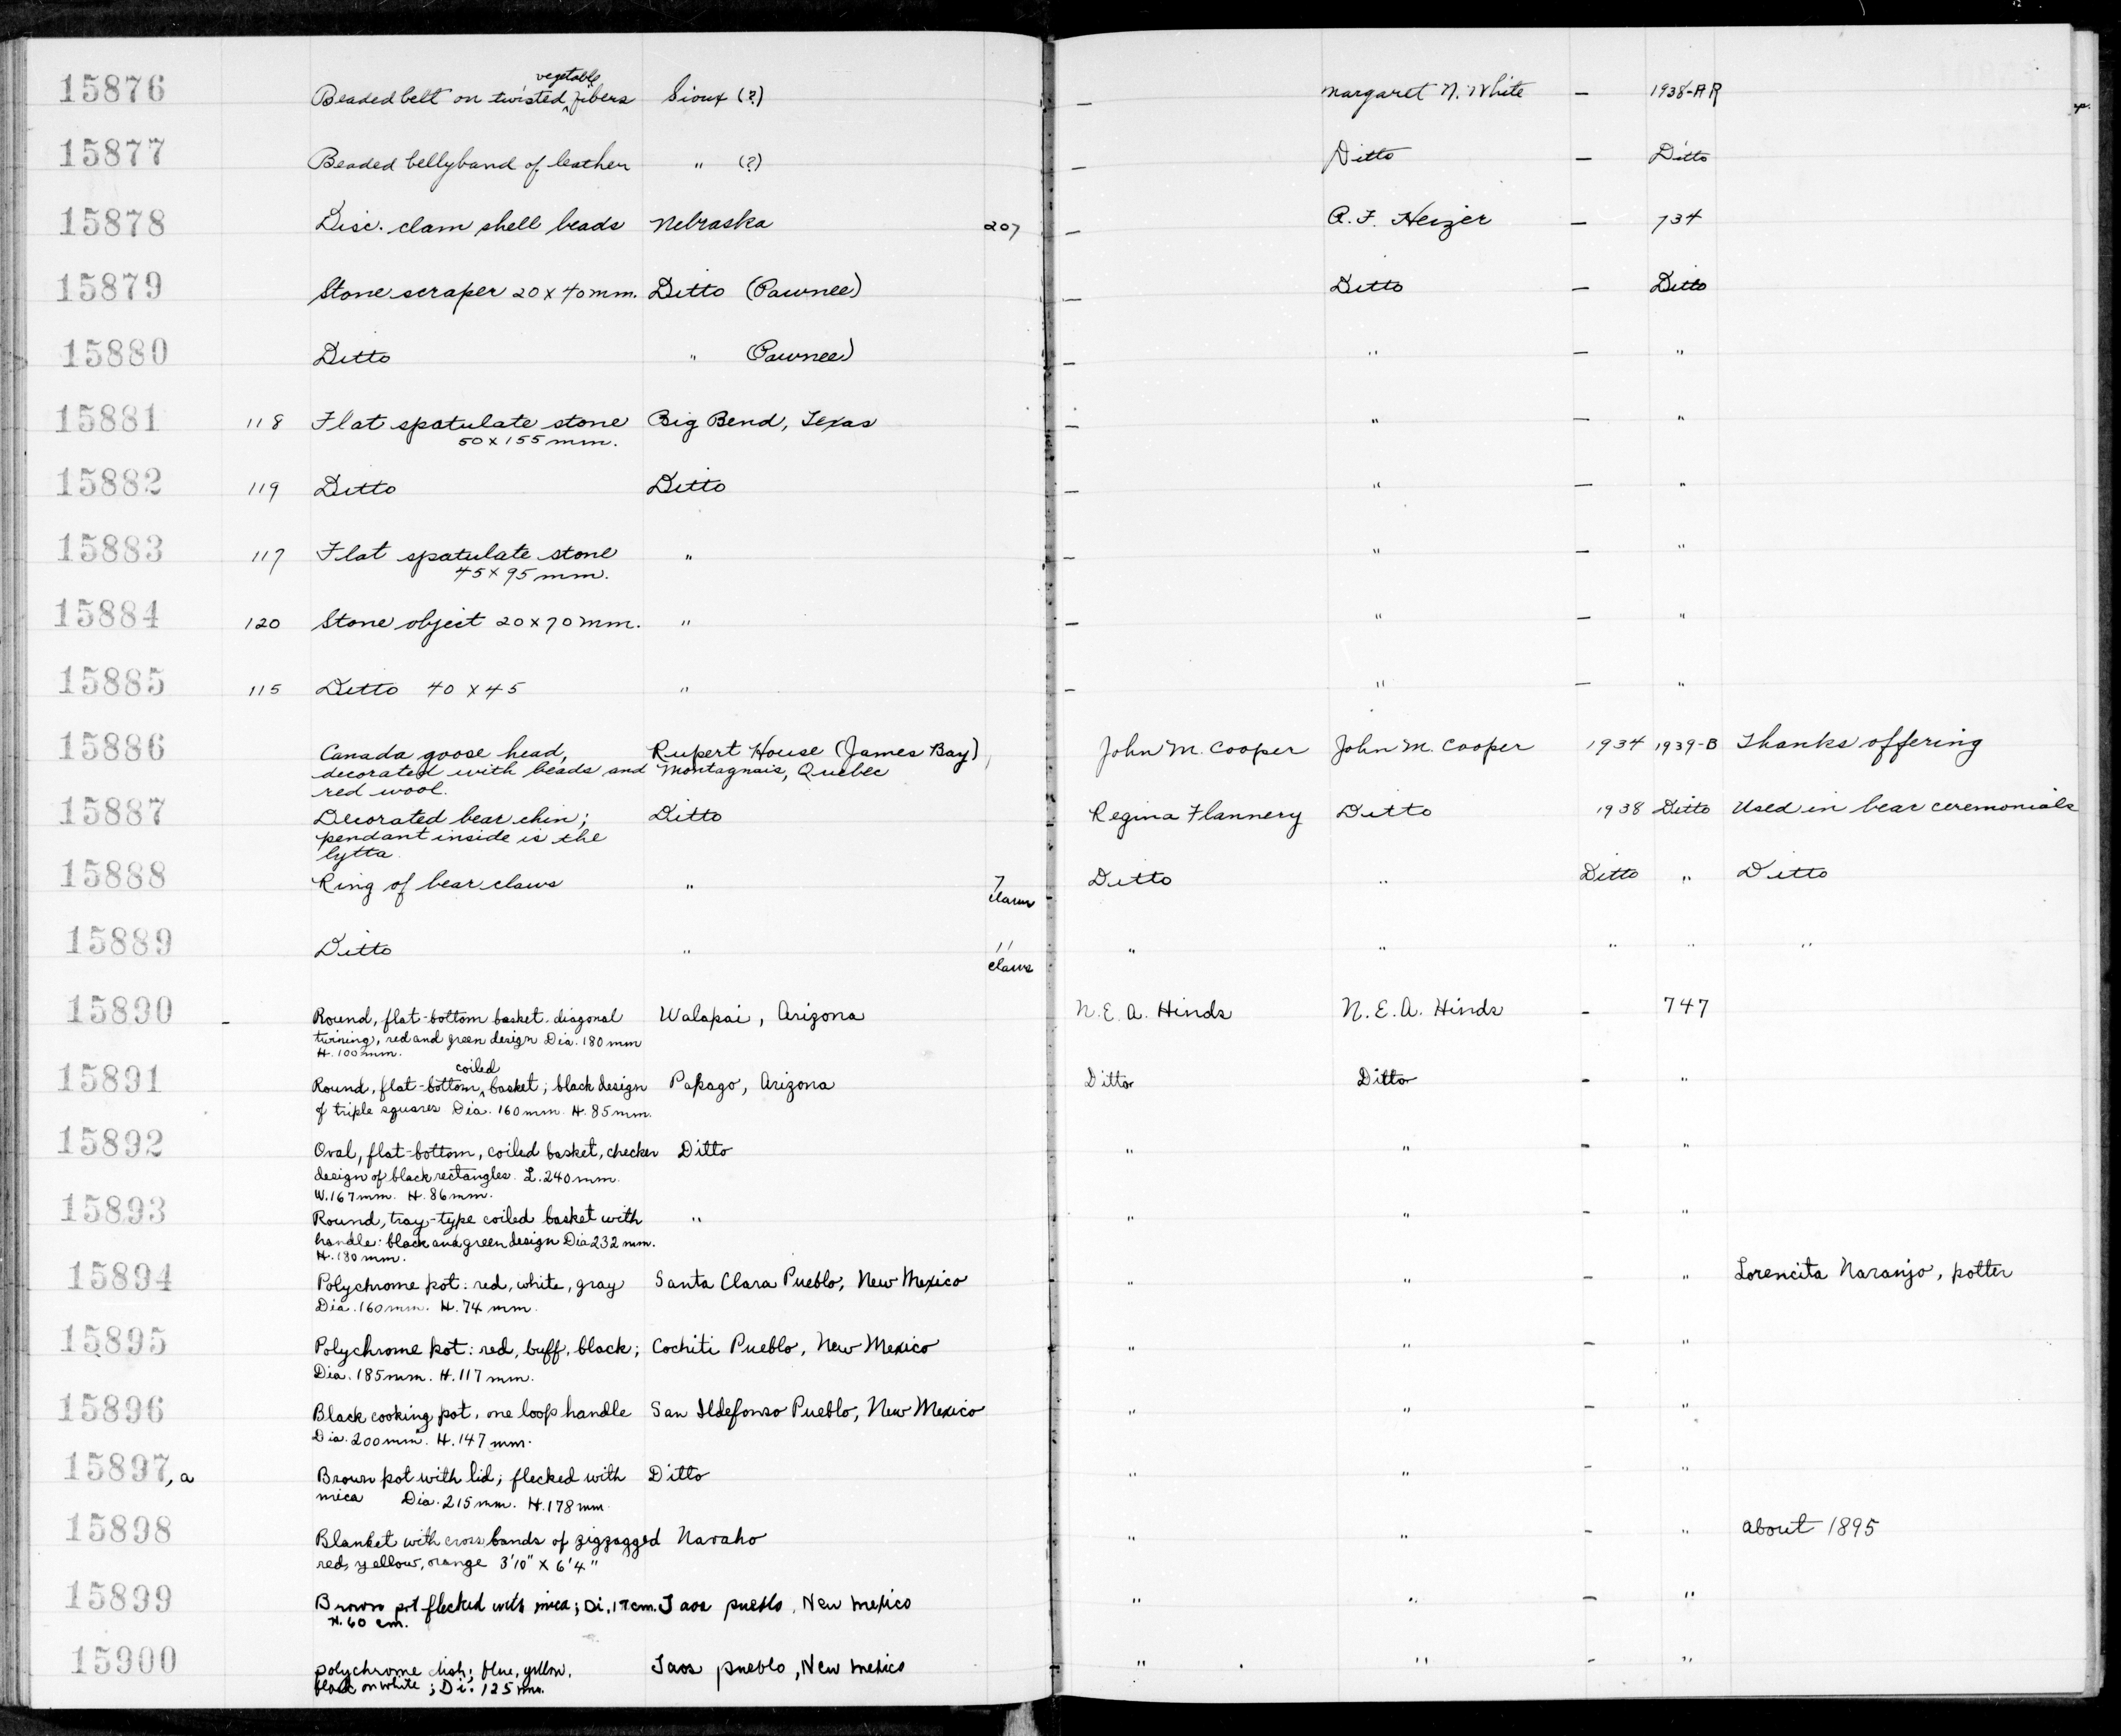 15876 Beaded belt on twisted vegetable fibers Sioux (?) — Margaret N. White — 1938-AR
15877 Beaded bellyband of leather " (?) — Ditto — Ditto
15878 Disc. clam shell beads Nebraska 207 — R. F. Heizer — 734
15879 Stone scraper 20 x 40 mm. Ditto (Pawnee) — Ditto — Ditto
15880 Ditto " (Pawnee) — " — "
15881 118 Flat spatulate stone Big Bend, Texas — " — "
50 x 155 mm.
15882 119 Ditto Ditto — " — "
15883 117 Flat spatulate stone " — " — "
45 x 95 mm.
15884 120 Stone object 20 x 70 mm. " — " — "
15885 115 Ditto 40 x 45 " — " — "
15886 Canada goose head, Rupert House (James Bay), John M. Cooper John M. Cooper 1934 1939-B Thanks offering
decorated with beads and Montagnais, Quebec
red wool.
15887 Decorated bear chin; Ditto Regina Flannery Ditto 1938 Ditto Used in bear ceremonials
pendant inside is the
lytta
15888 Ring of bear claws " 7 Ditto " Ditto " Ditto
claws
15889 Ditto " 11 " " " " "
claws
15890 - Round, flat-bottom basket. diagonal Walapai, Arizona N. E. A. Hinds N. E. A. Hinds - 747
twining, red and green design Dia. 180 mm
H. 100 mm.
15891 Round, flat-bottom coiled basket; black design Papago, Arizona Ditto Ditto - "
of triple squares Dia. 160 mm. H. 85 mm.
15892 Oval, flat-bottom, coiled basket, checker Ditto " " - "
design of black rectangles. L. 240 mm.
W. 167 mm. H. 86 mm.
15893 Round, tray-type coiled basket with " " " - "
handle: black and green design Dia 232 mm.
H. 180 mm.
15894 Polychrome pot: red, white, gray Santa Clara Pueblo, New Mexico " " - " Lorencita Naranjo, potter
Dia. 160 mm. H. 74 mm.
15895 Polychrome pot: red, buff, black; Cochiti Pueblo, New Mexico " " - "
Dia. 185 mm. H. 117 mm.
15896 Black cooking pot, one loop handle San Ildefonso Pueblo, New Mexico " " - "
Dia. 200 mm. H. 147 mm.
15897, a Brown pot with lid; flecked with Ditto " " - "
mica Dia. 215 mm. H. 178 mm
15898 Blanket with cross bands of zigzagged Navaho " " - " About 1895
red, yellow, orange 3'10" X 6'4"
15899 Brown pot flecked with mica; Di. 17 cm. Taos pueblo, New Mexico " " - "
H. 60 cm.
15900 polychrome dish; blue, yellow, Taos pueblo, New Mexico " " - "
black on white; Di. 125 mm.